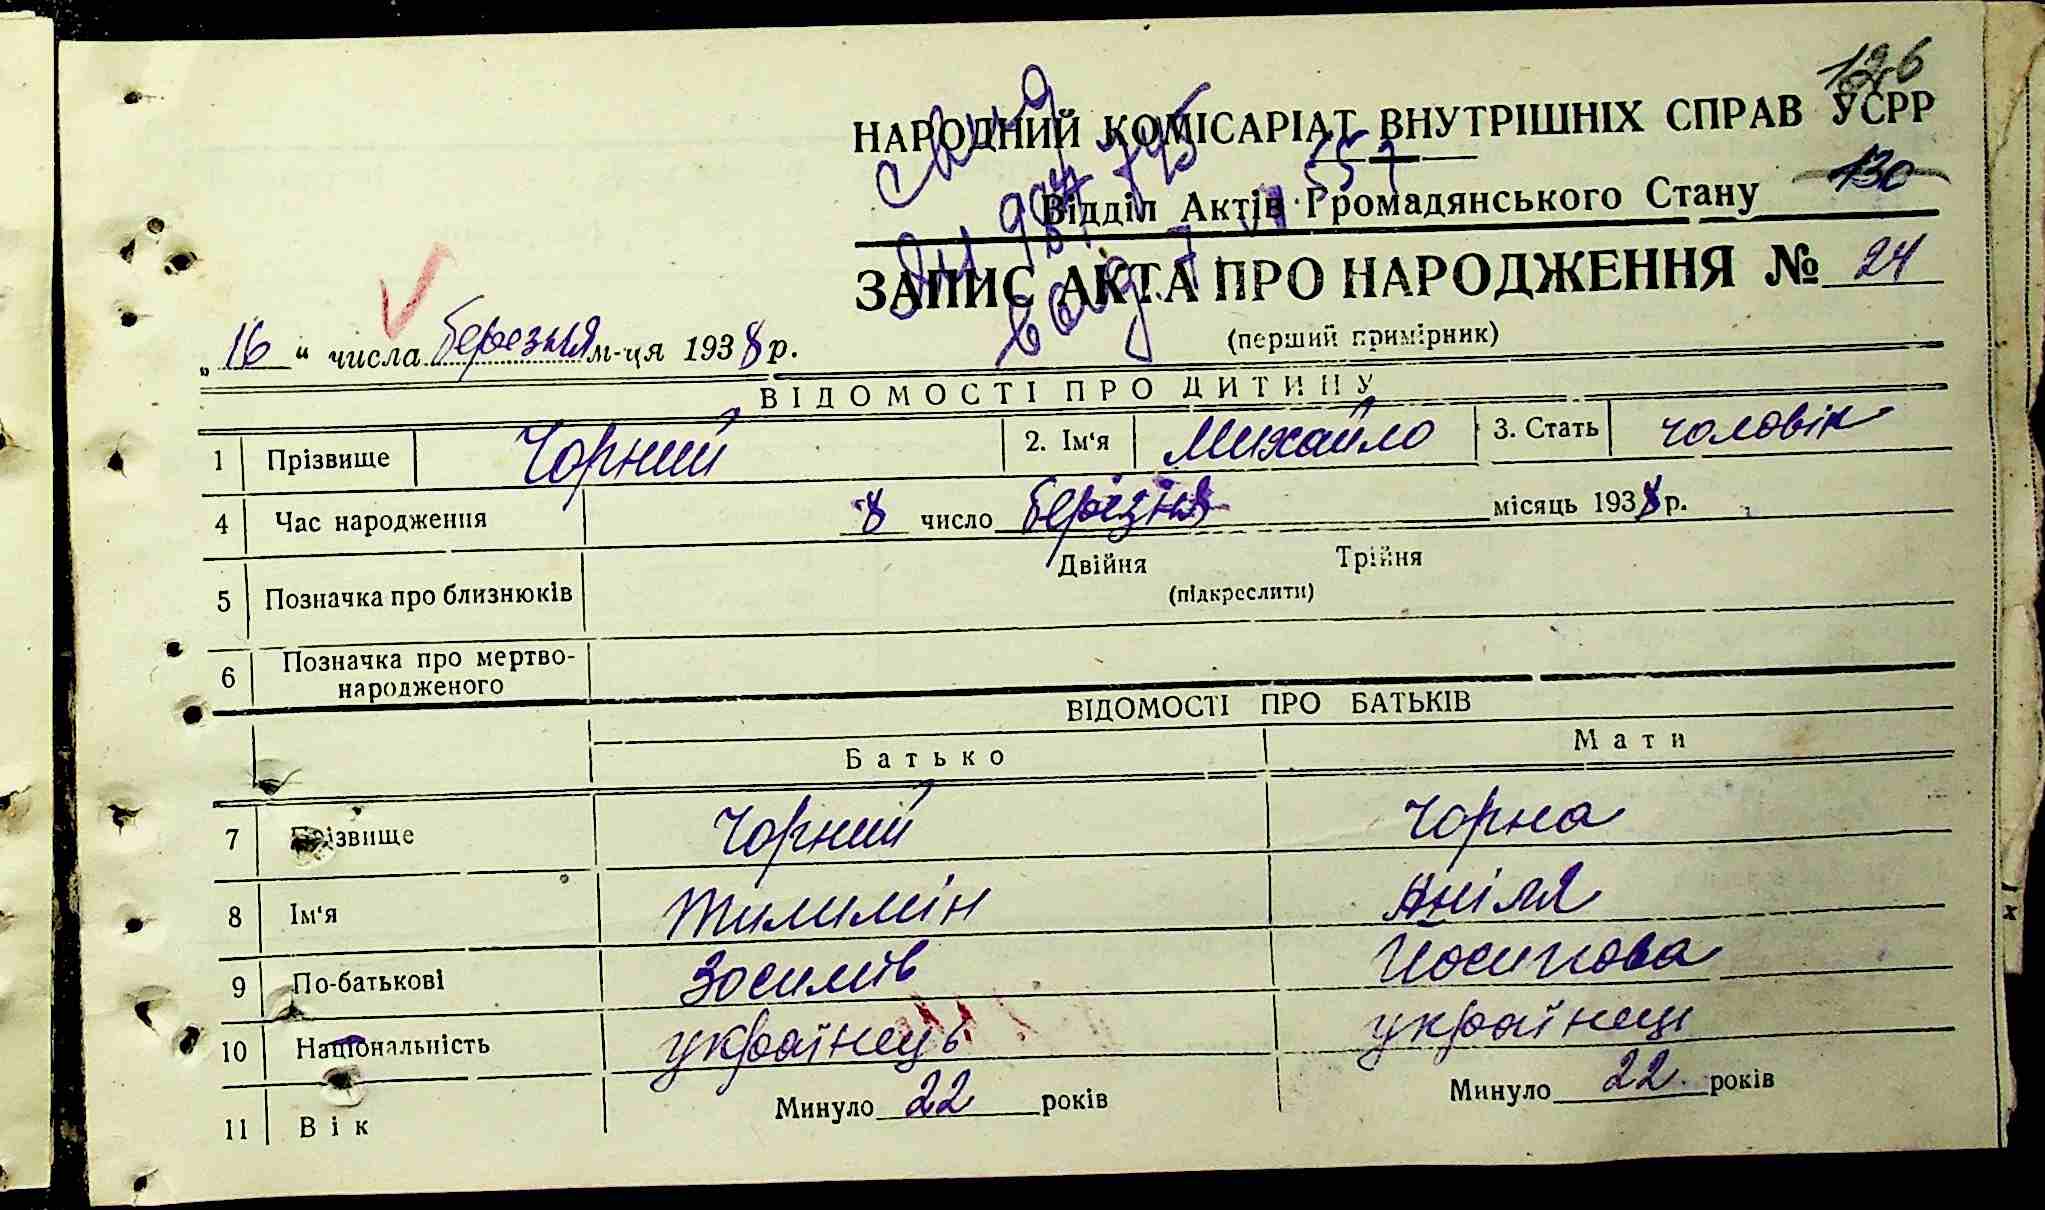 126
НАРОДНИЙ КОМІСАРІАТ ВНУТРІШНІХ СПРАВ УСРР
Відділ Актів Громадянського Стану 130
ЗАПИС АКТА ПРО НАРОДЖЕННЯ № 24
(перший примірник)
„16“ числа березня м-ця 1938 р.
ВІДОМОСТІ ПРО ДИТИНУ
1 Прізвище Чорний 2. Ім‘я Михайло 3. Стать чоловік
4 Час народження 8 число березня місяць 1938 р.
5 Позначка про близнюків Двійня Трійня
(підкреслити)
6 Позначка про мертво-
народженого
ВІДОМОСТІ ПРО БАТЬКІВ
Батько Мати
7 Прізвище Чорний Чорна
8 Ім‘я Тилимін Аніля
9 По-батькові Зосимів Йосипова
10 Національність українець українец
11 Вік Минуло 22 років Минуло 22 років